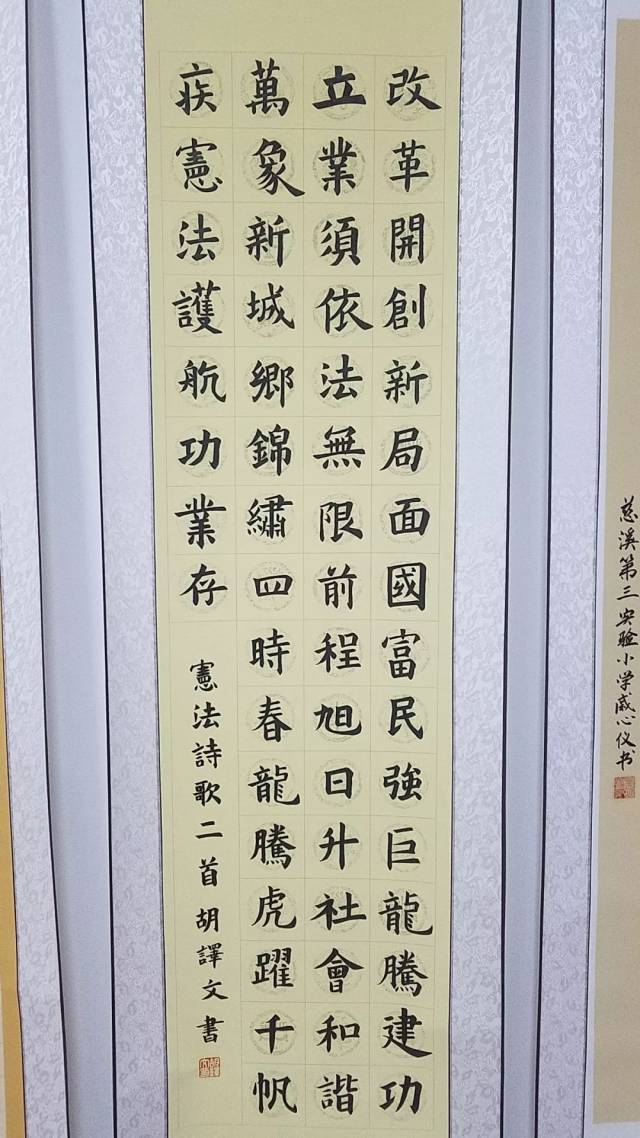 改革開創新局面國富民強巨龍騰建功
立業須依法無限前程旭日升社會和諧
萬象新城鄉錦繡四時春龍騰虎躍千帆
疾憲法護航功業存
憲法詩歌二首胡譯文書
慈溪第三实验小学戚心仪书